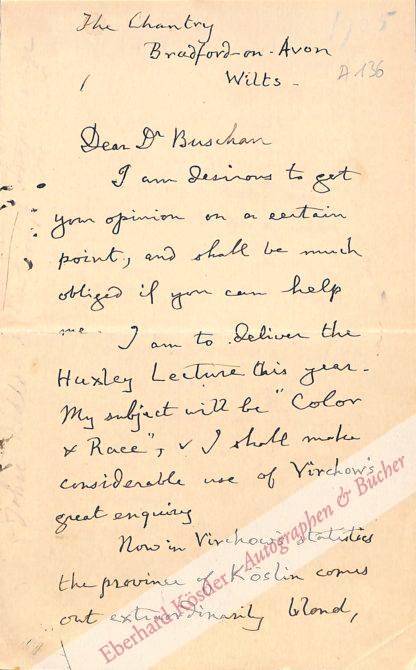 The Chantry
Bradford-on-Avon
Wilts -
A 136
Dear Dr Buschan
I am desirous to get
your opinion on a certain
point, and shall be much
obliged if you can help
me. I am to deliver the
Huxley Lecture this year.
My subject will be "Color
& Race", & I shall make
considerable use of Virchow's
great enquiry
Now in Virchow's statistics
the province of Köslin comes
out extraordinarily blond,
Eberhard Köstler Autographen & Bücher